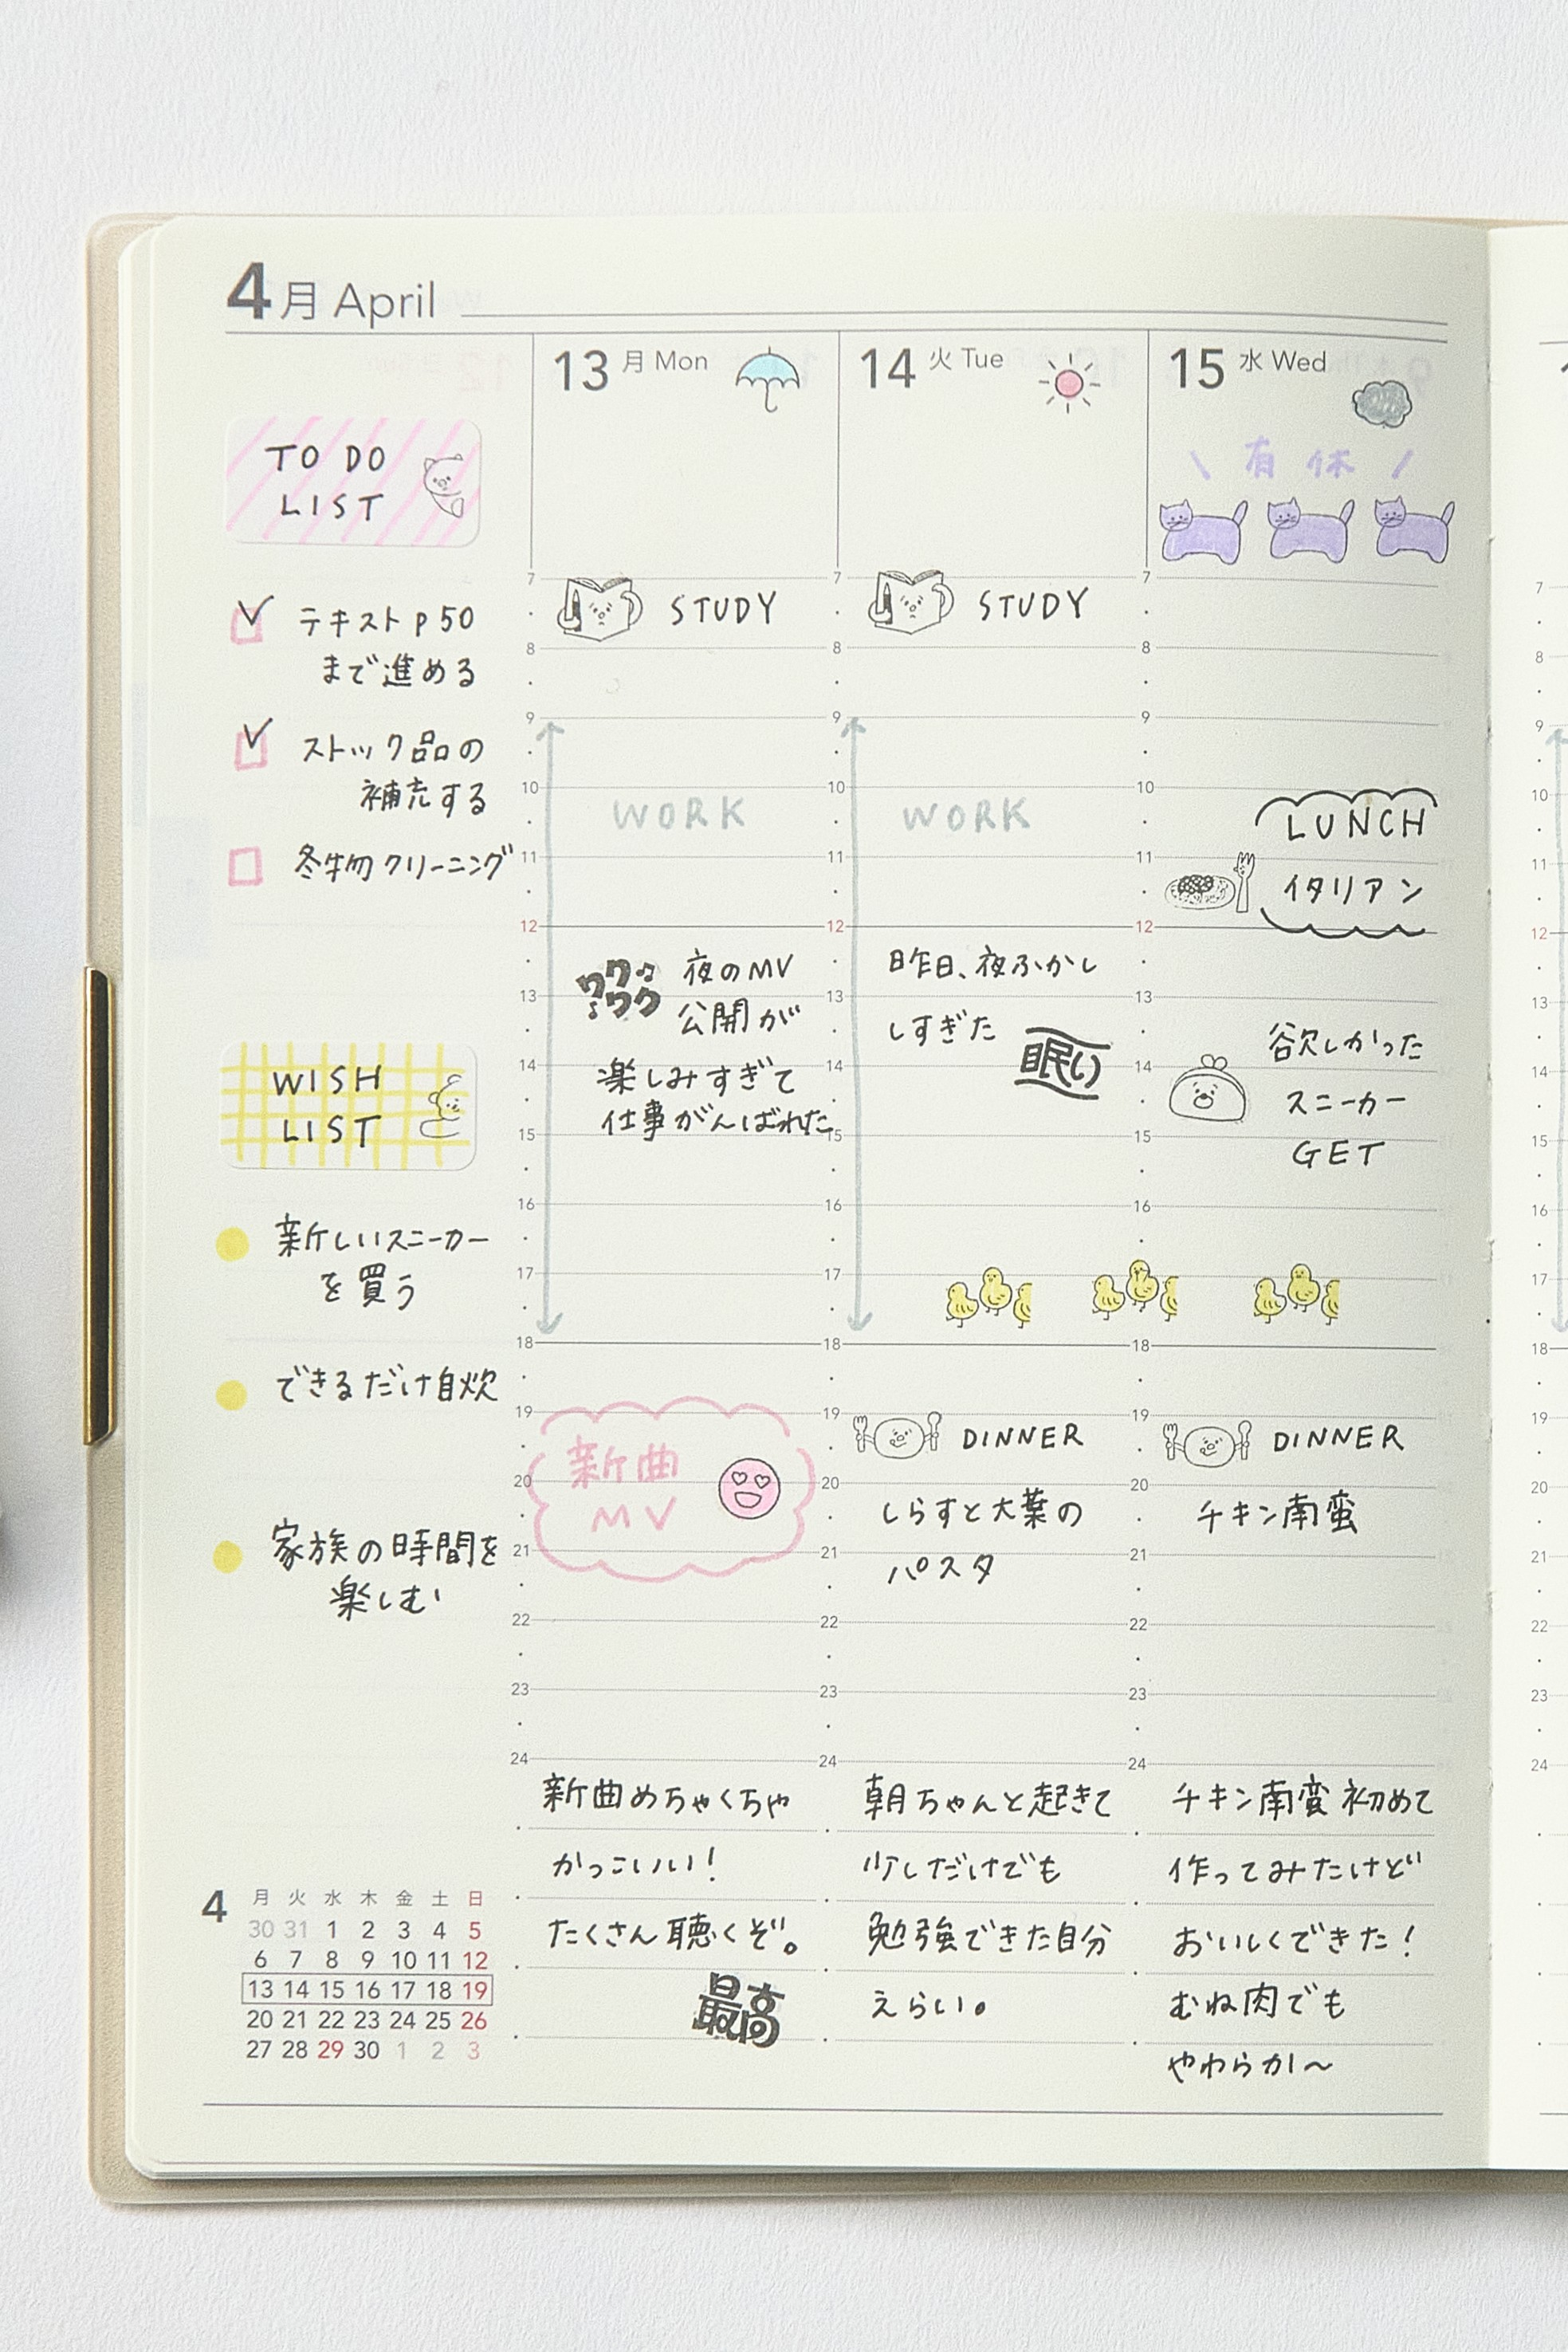 4月 April
TO DO
LIST
テキスト p 50
まで進める
ストック品の
補充する
冬物クリーニング
WISH
LIST
新しいスニーカー
を買う
できるだけ自炊
家族の時間を
楽しむ
4
月 火 水 木 金 土 日
30 31 1 2 3 4 5
6 7 8 9 10 11 12
13 14 15 16 17 18 19
20 21 22 23 24 25 26
27 28 29 30 1 2 3
13 月 Mon
7
STUDY
8
9
10
WORK
11
12
ワクワク
夜のMV
13
公開が
14
楽しみすぎて
仕事がんばれた
15
16
17
18
19
新曲
20
MV
21
22
23
24
新曲めちゃくちゃ
かっこいい!
たくさん聴くぞ。
最高
14 火 Tue
7
STUDY
8
9
10
WORK
11
12
昨日、夜ふかし
13
しすぎた
眠い
14
15
16
17
18
19
DINNER
20
しらすと大葉の
21
パスタ
22
23
24
朝ちゃんと起きて
少しだけでも
勉強できた自分
えらい。
15 水 Wed
\ 有休 /
7
8
9
10
LUNCH
11
イタリアン
12
13
欲しかった
14
スニーカー
15
GET
16
17
18
19
DINNER
20
チキン南蛮
21
22
23
24
チキン南蛮 初めて
作ってみたけど
おいしくできた!
むね肉でも
やわらかい〜
7
8
9
10
11
12
13
14
15
16
17
18
19
20
21
22
23
24